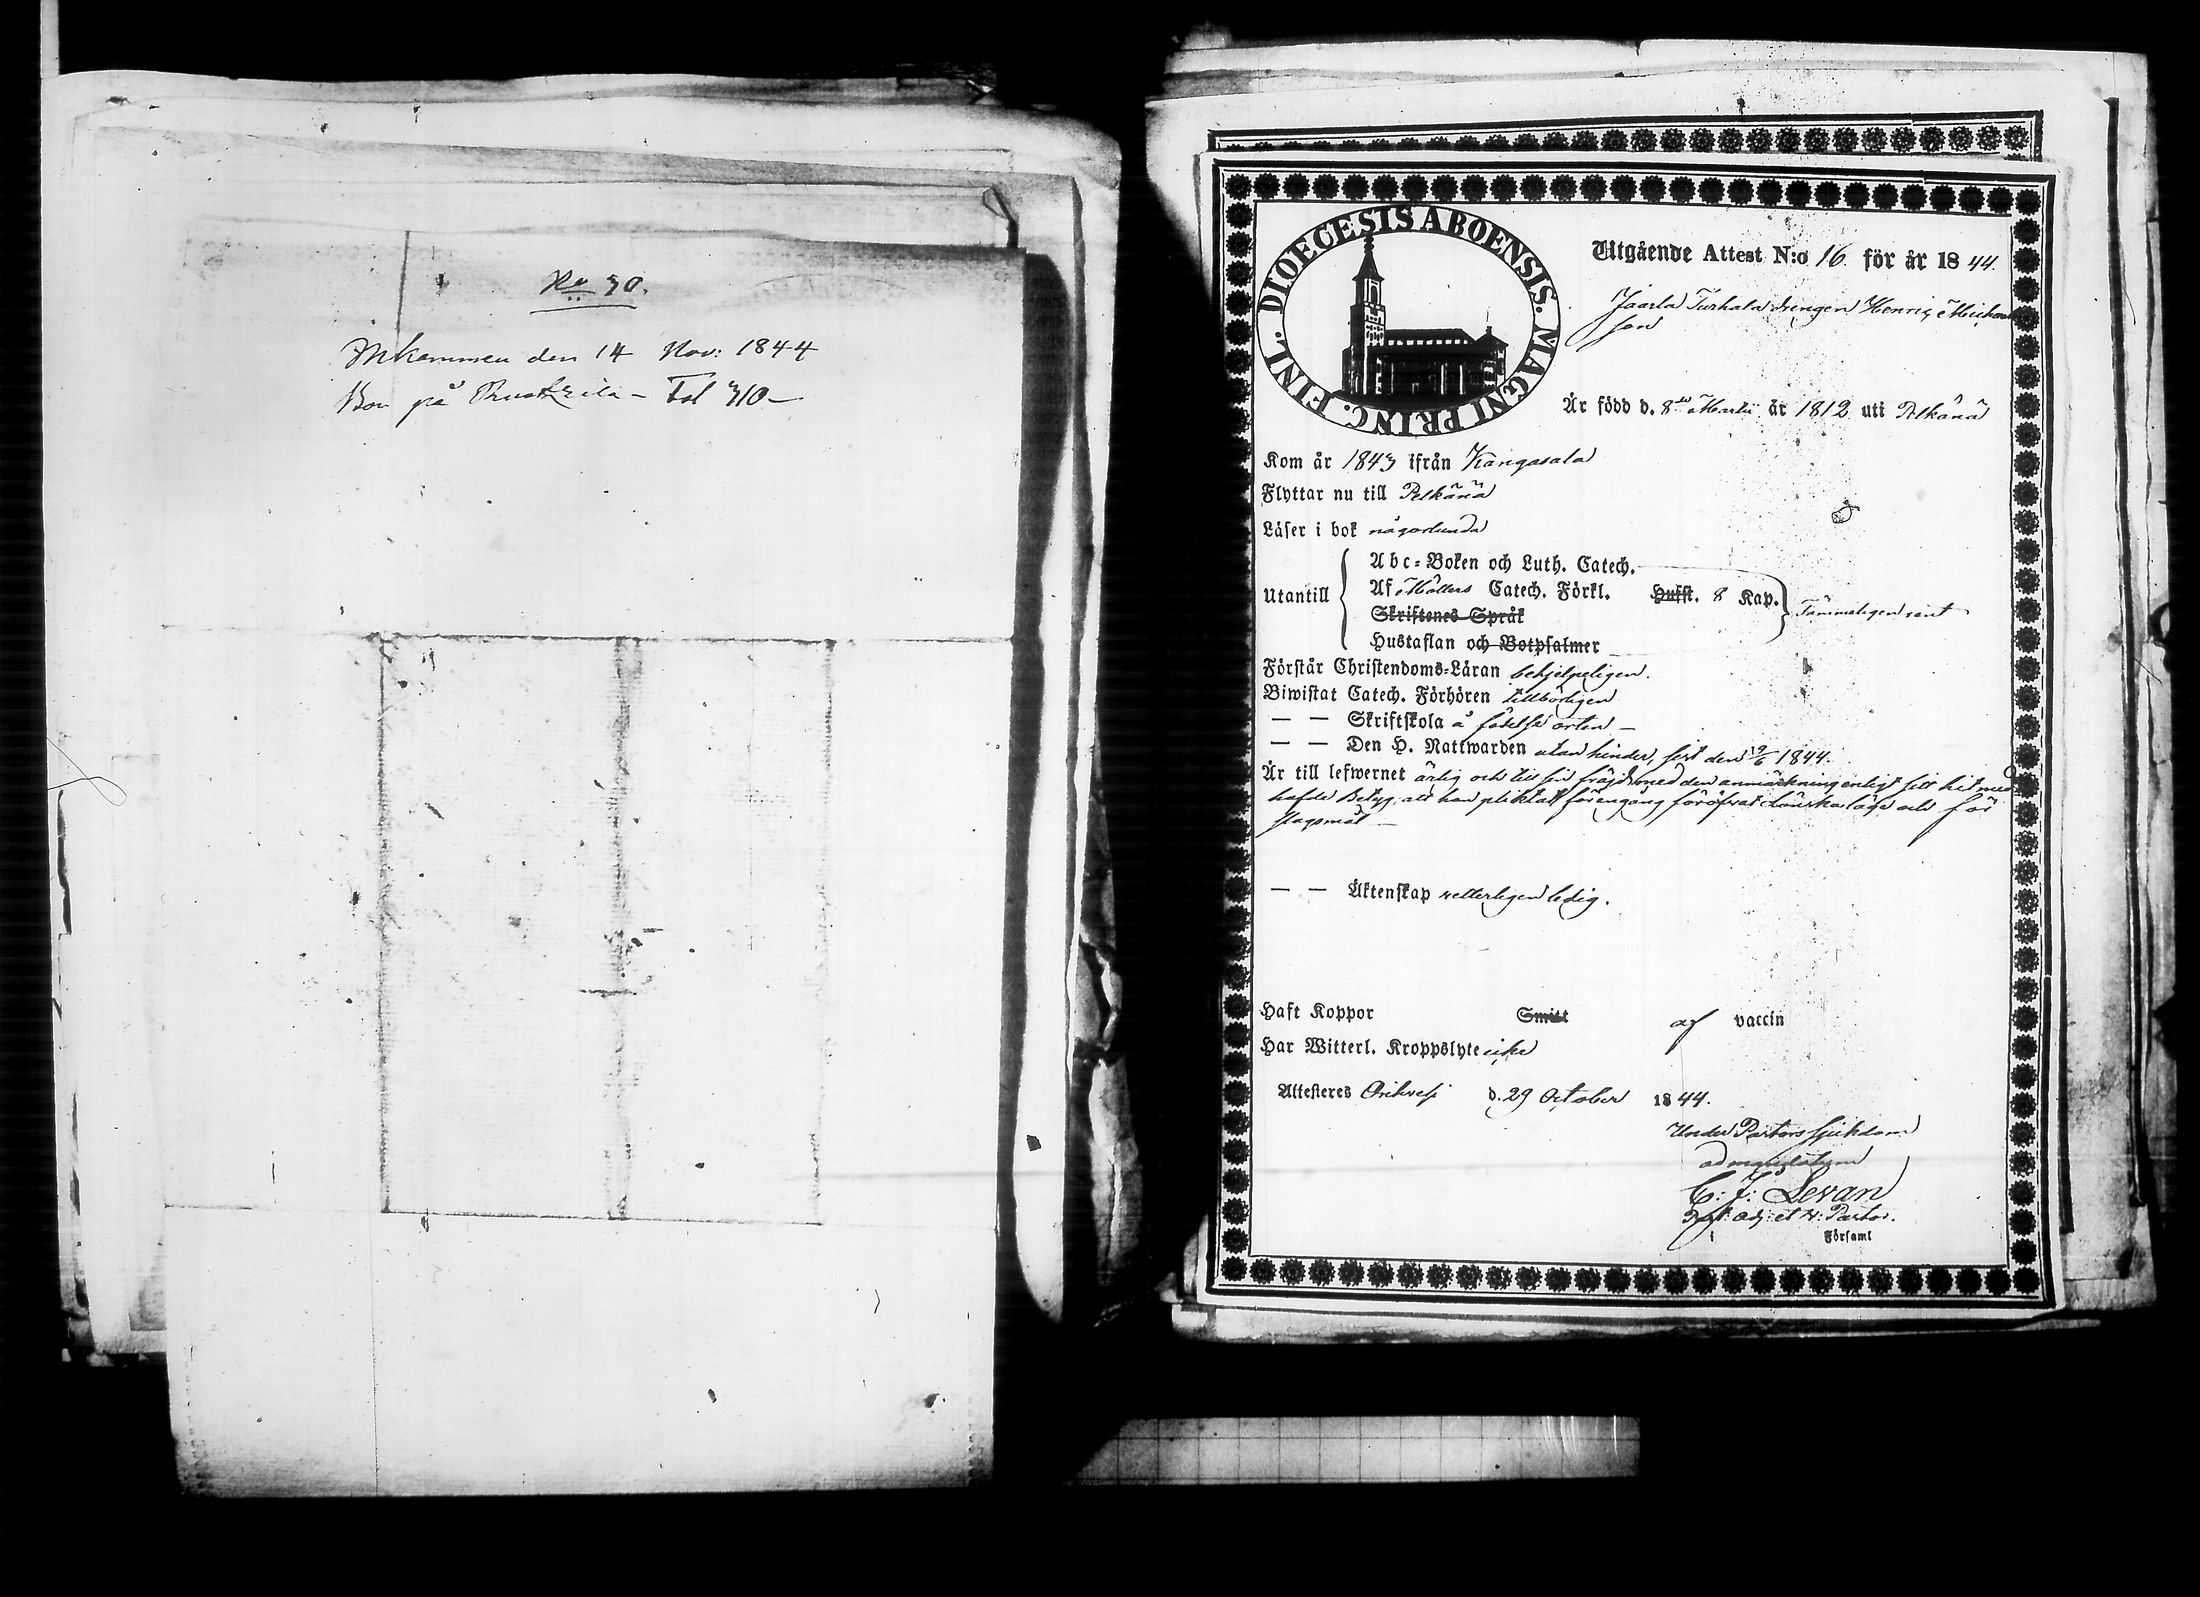 No 70.
Inkommen den 14 Nov: 1844
Bor på Rustkeila – Fol 310 –
DIOECESIS ABOENSIS. MAGNI PRINC. FINL.
Utgående Attest N:o 16 för år 1844.
Jaarla Turkala drengen Henric Michels
son
Är född d. 8de Martii år 1812 uti Pelkänä
Kom år 1843 ifrån Kangasala
Flyttar nu till Pelkänä
Läser i bok någorlunda
Utantill
Abc-Boken och Luth. Catech.
Af Möllers Catech. Förkl. Husst. 8 Kap.
Skriftenes Språk
Hustaflan och Botpsalmer
Temmeligen rent
Förstår Christendoms-Läran behjelpeligen.
Biwistat Catech. Förhören tillbörligen
— — Skriftskola å födelse orten –
— — Den H. Nattwarden utan hinder, sist den 19/6 1844.
Är till lefwernet ärlig och till sin frägd med den anmärkning enligt sitt hit med
hafde Betyg, att han pliktat för en gång föröfvat lönskaläge och för
slagsmål –
— — Äktenskap vetterligen ledig.
Haft Koppor Smitt af vaccin
Har Witterl. Kroppslyte icke
Attesteres Orihvesi d. 29 October 1844.
Under Pastors sjukdom
C: J: Levan
adj: et v: Pastor.
i Församl